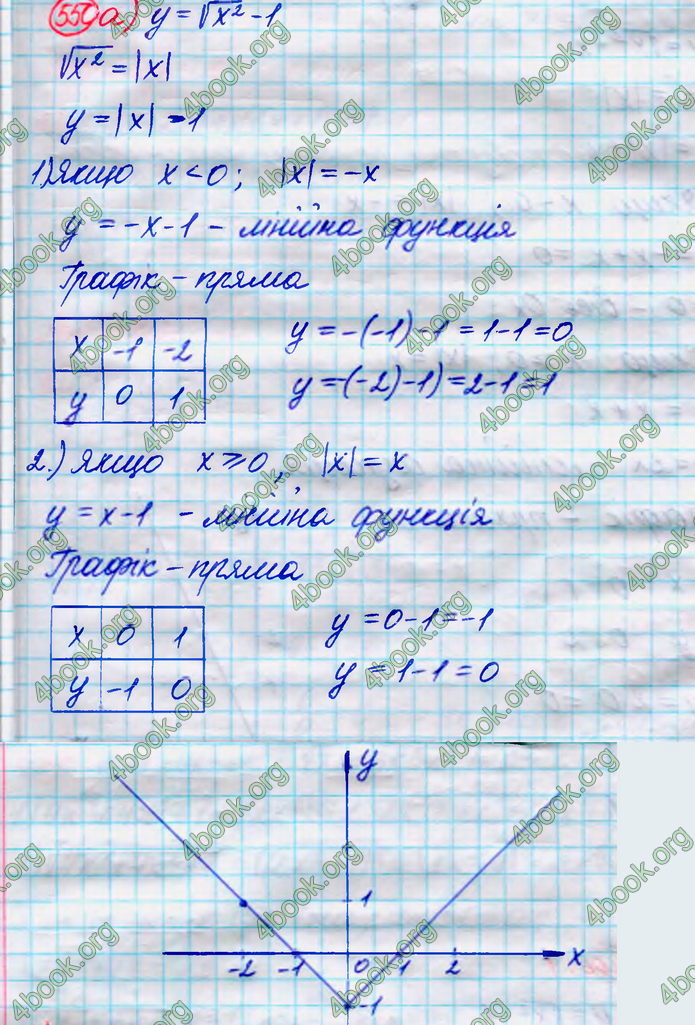 550 а) y = √x² - 1
√x² = |x|
y = |x| - 1
1) Якщо x < 0; |x| = -x
y = -x - 1 - лінійна функція
Графік - пряма
x -1 -2
y 0 1
y = -(-1) - 1 = 1 - 1 = 0
y = (-2) - 1) = 2 - 1 = 1
2.) якщо x ≥ 0, |x| = x
y = x - 1 - лінійна функція
Графік - пряма
x 0 1
y -1 0
y = 0 - 1 = -1
y = 1 - 1 = 0
y
1
-2 -1 0 1 2 x
-1
4book.org